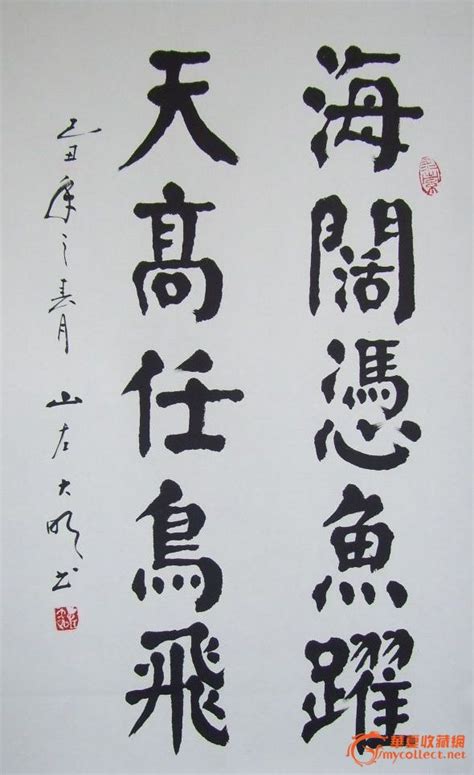 海闊憑魚躍
天高任鳥飛
己丑年之春月 山左大明書
華夏收藏網
mycollect.net